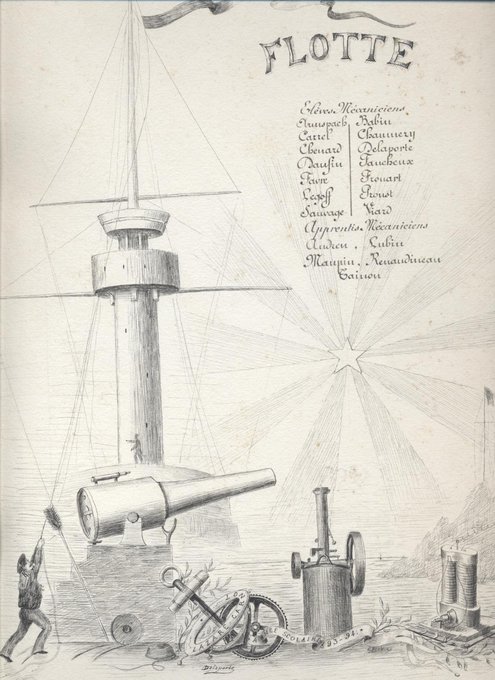 FLOTTE
Elèves Mécaniciens
Armspach Babin
Carrel Chaumery
Chenard Delaporte
Dausin Faucheux
Favre Frouart
Legoff Proust
Sauvage Viard
Apprentis Mécaniciens
Andrieu. Lubin
Maupin. Renaudineau
Gainon
SCOLAIRE 93-94.
Delaporte